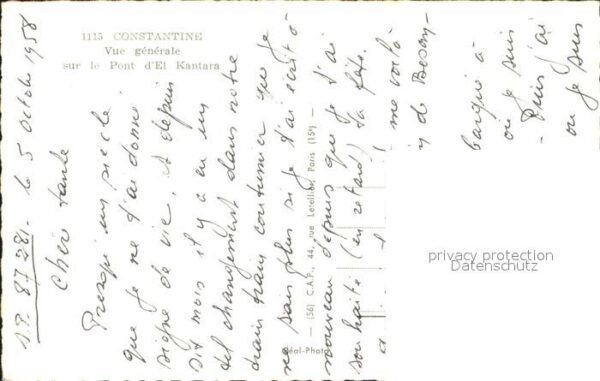 1115 CONSTANTINE
Vue générale
sur le Pont d'El Kantara
S.P. 87.281 - le 5 Octobre 1958
Chère tante
Presqu'un siècle
que je ne t'ai donné
signe de vie, et depuis
dix mois il y a eu un
tel changement dans notre
train train coutumier que je
ne sais plus si je t'ai écrit à
nouveau depuis que je t'ai
souhaité (en retard) ta fête.
me voilà
de Besan
à
où je suis
Puis j'ai
où je suis
Réal-Photo — (56) C.A.P., 44, rue Letellier, Paris (15e)
privacy protection
Datenschutz